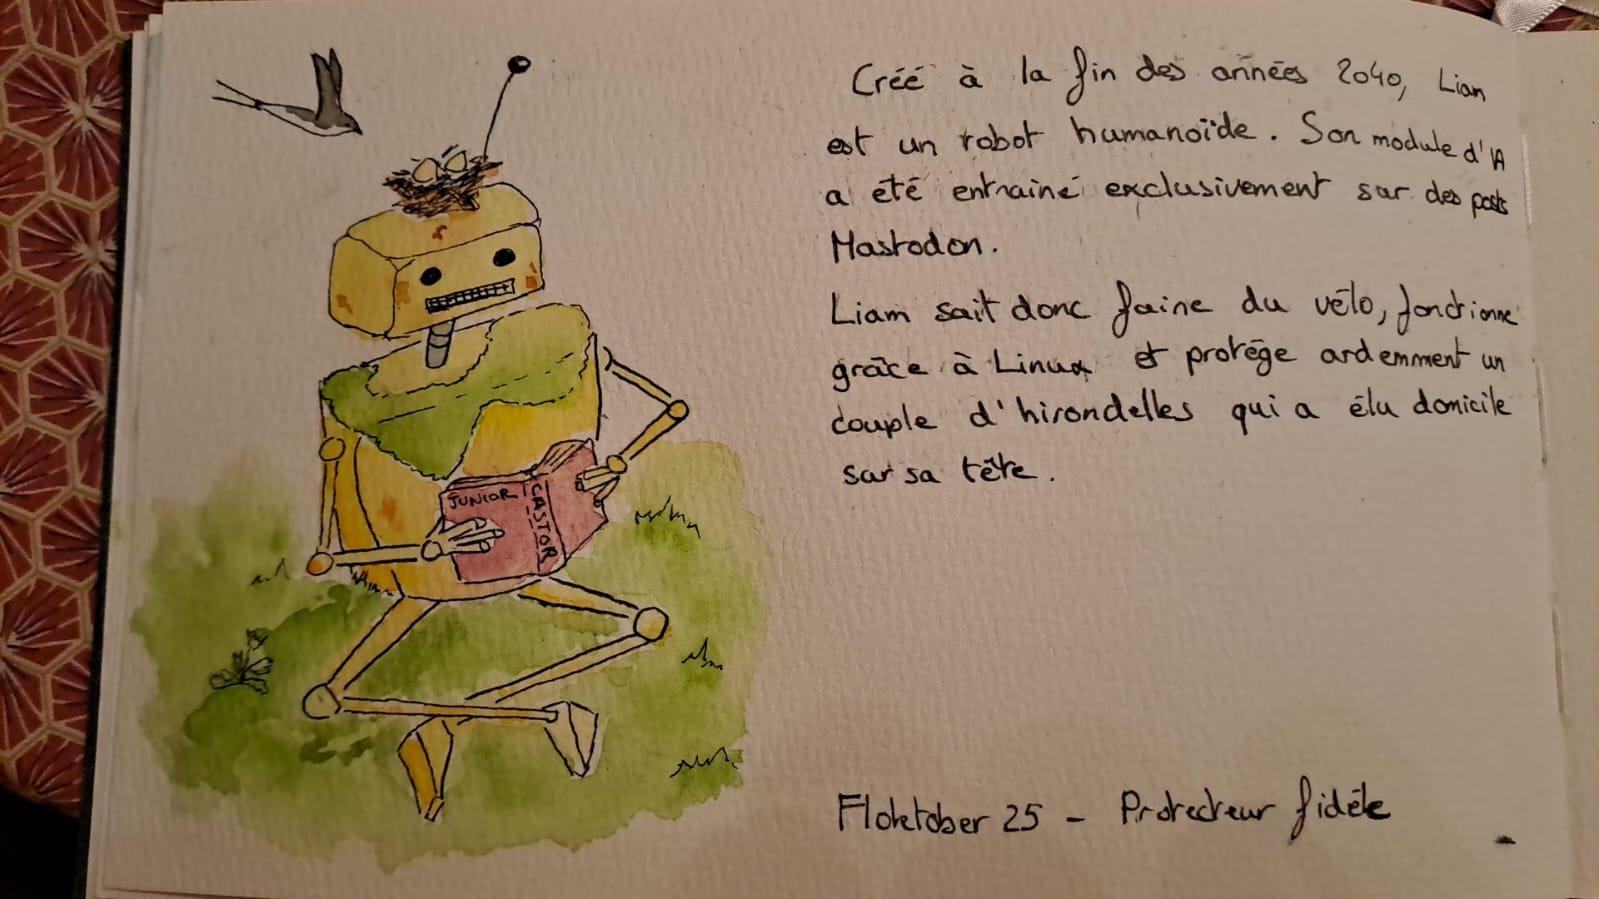 JUNIOR
CASTOR
Créé à la fin des années 2040, Liam
est un robot humanoïde. Son module d'IA
a été entrainé exclusivement sur des posts
Mastodon.
Liam sait donc faire du vélo, fonctionne
grâce à Linux et protège ardemment un
couple d'hirondelles qui a élu domicile
sur sa tête.
Floktober 25 - Protecteur fidèle